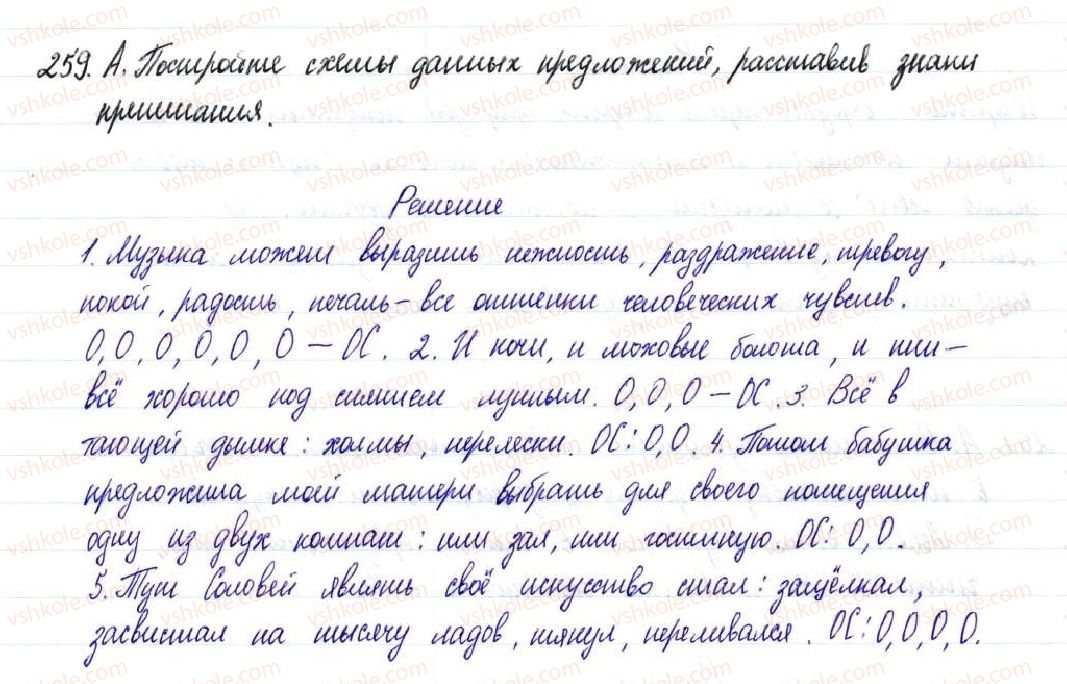 259. А. Постройте схемы данных предложений, расставив знаки
препинания.
Решение
1. Музыка может выразить нежность, раздражение, тревогу,
покой, радость, печаль – все оттенки человеческих чувств.
О, О, О, О, О, О – ОС. 2. И ночи, и моховые болота, и пни –
всё хорошо под сиянием лунным. О, О, О – ОС. 3. Всё в
тающей дымке: холмы, перелески. ОС: О, О. 4. Потом бабушка
предложила моей матери выбрать для своего помещения
одну из двух комнат: или зал, или гостиную. ОС: О, О.
5. Тут Соловей являть своё искусство стал: защёлкал,
засвистал на тысячу ладов, тянул, переливался. ОС: О, О, О, О.